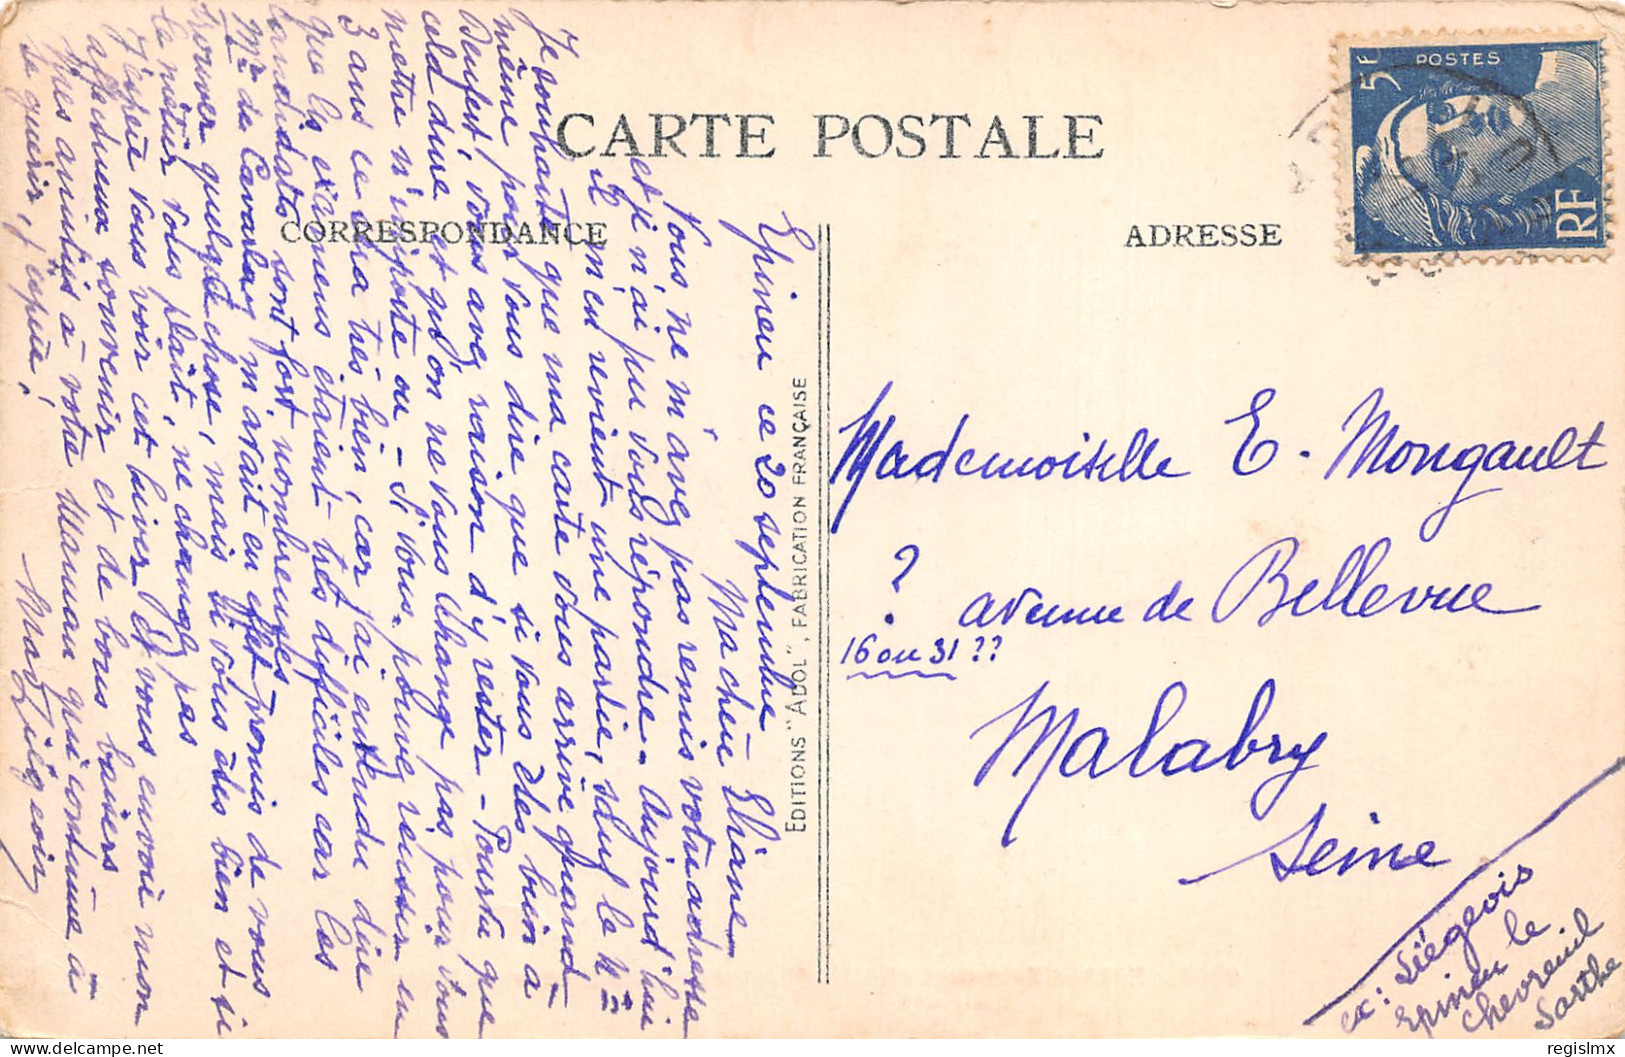 CARTE POSTALE
CORRESPONDANCE
ADRESSE
5F
POSTES
RF
EDITIONS "ADOL", FABRICATION FRANÇAISE
Epineu ce 20 septembre
Ma chère Eliane
Vous ne m'avez pas remis votre adresse
et je n'ai pu vous répondre. Aujourd'hui
il m'en revient une partie, sauf le n°
Je souhaite que ma carte vous arrive quand
même pour vous dire que si vous êtes bien à
Denfert, vous avez raison d'y rester - Pourvu que
cela dure et qu'on ne vous change pas pour vous
mettre n'importe ou - Si vous pouvez réussir en
3 ans ce sera très bien, car j'ai entendu dire
que les examens étaient très difficiles car les
candidats sont fort nombreuses
Mr de Cavarlay m'avait en effet promis de vous
trouver quelque chose, mais si vous êtes bien et si
le métier vous plaît, ne changez pas
J'espère vous voir cet hiver Et vous envoie mon
affectueux souvenir et de bons baisers
Mes amitiés à votre Maman qui continue à
se guérir, j'espère.
Mad Liégeois
Mademoiselle E. Mongault
? avenue de Bellevue
16 ou 31 ??
Malabry
Seine
ex: Liégeois
Epineu le
Chevreuil
Sarthe
regislmx